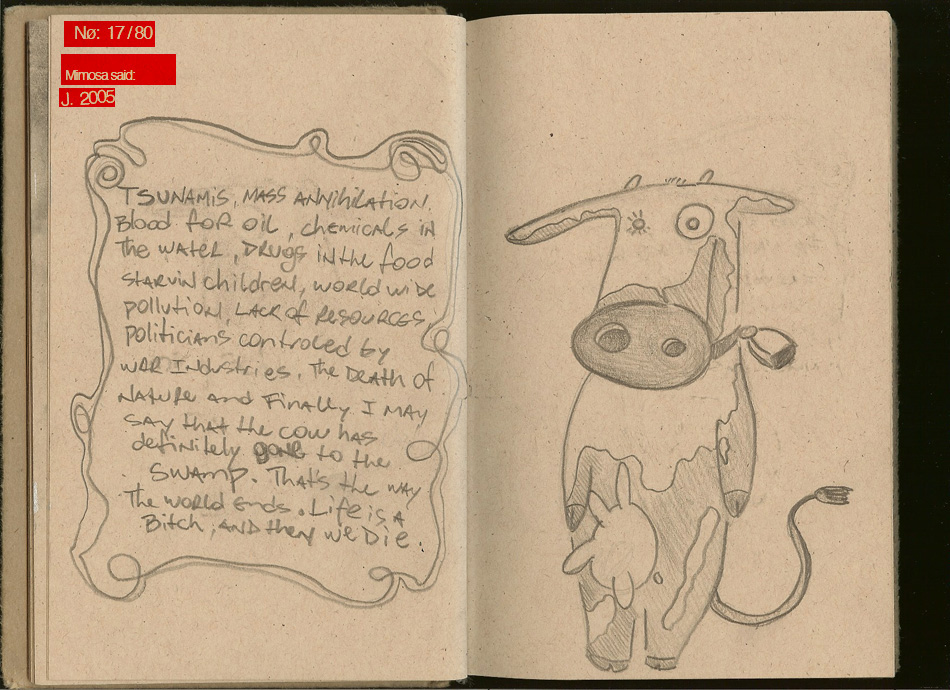 Nø: 17/80
Mimosa said:
J. 2005
TSUNAMIS, MASS ANNYIHILATION.
Blood for oil, chemicals in
the water, Drugs in the food
starvin children, world wide
pollution, Lack of Resources,
politicians controled by
war Industries. The Death of
Nature and Finally I may
say that the cow has
definitely gone to the
swamp. That's the way
the world ends. Life is a
Bitch, and then we Die.